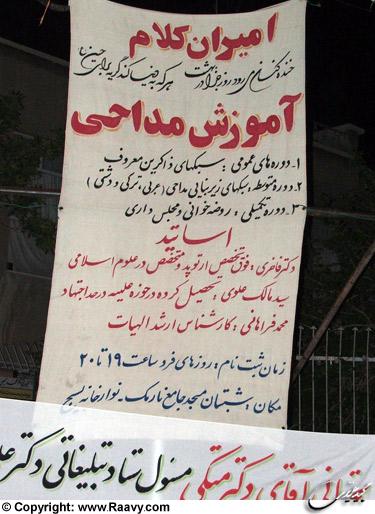 امیران کلام
خنده کنان می رود روز جزا در بهشت هر که به دنیا کند گریه برای حسین
آموزش مداحی
۱- دوره های عمومی : سبکهای ذاکرین معروف
۲- دوره متوسط : سبکهای زیربنایی مداحی ( عربی، ترکی و دشتی )
۳- دوره تکمیلی : روضه خوانی و مجلس داری
اساتید
دکتر فاخری : فوق تخصص ارتوپد و متخصص در علوم اسلامی
سید مالک علوی : تحصیل کرده در حوزه علمیه در حد اجتهاد
محمد فراهانی : کارشناس ارشد الهیات
زمان ثبت نام : روزهای فرد ساعت ۱۹ تا ۲۰
مکان : شبستان مسجد جامع نارمک - نوارخانه بسیج
آقای دکتر متکی مسئول ستاد تبلیغاتی دکتر
© Copyright: www.Raavy.com